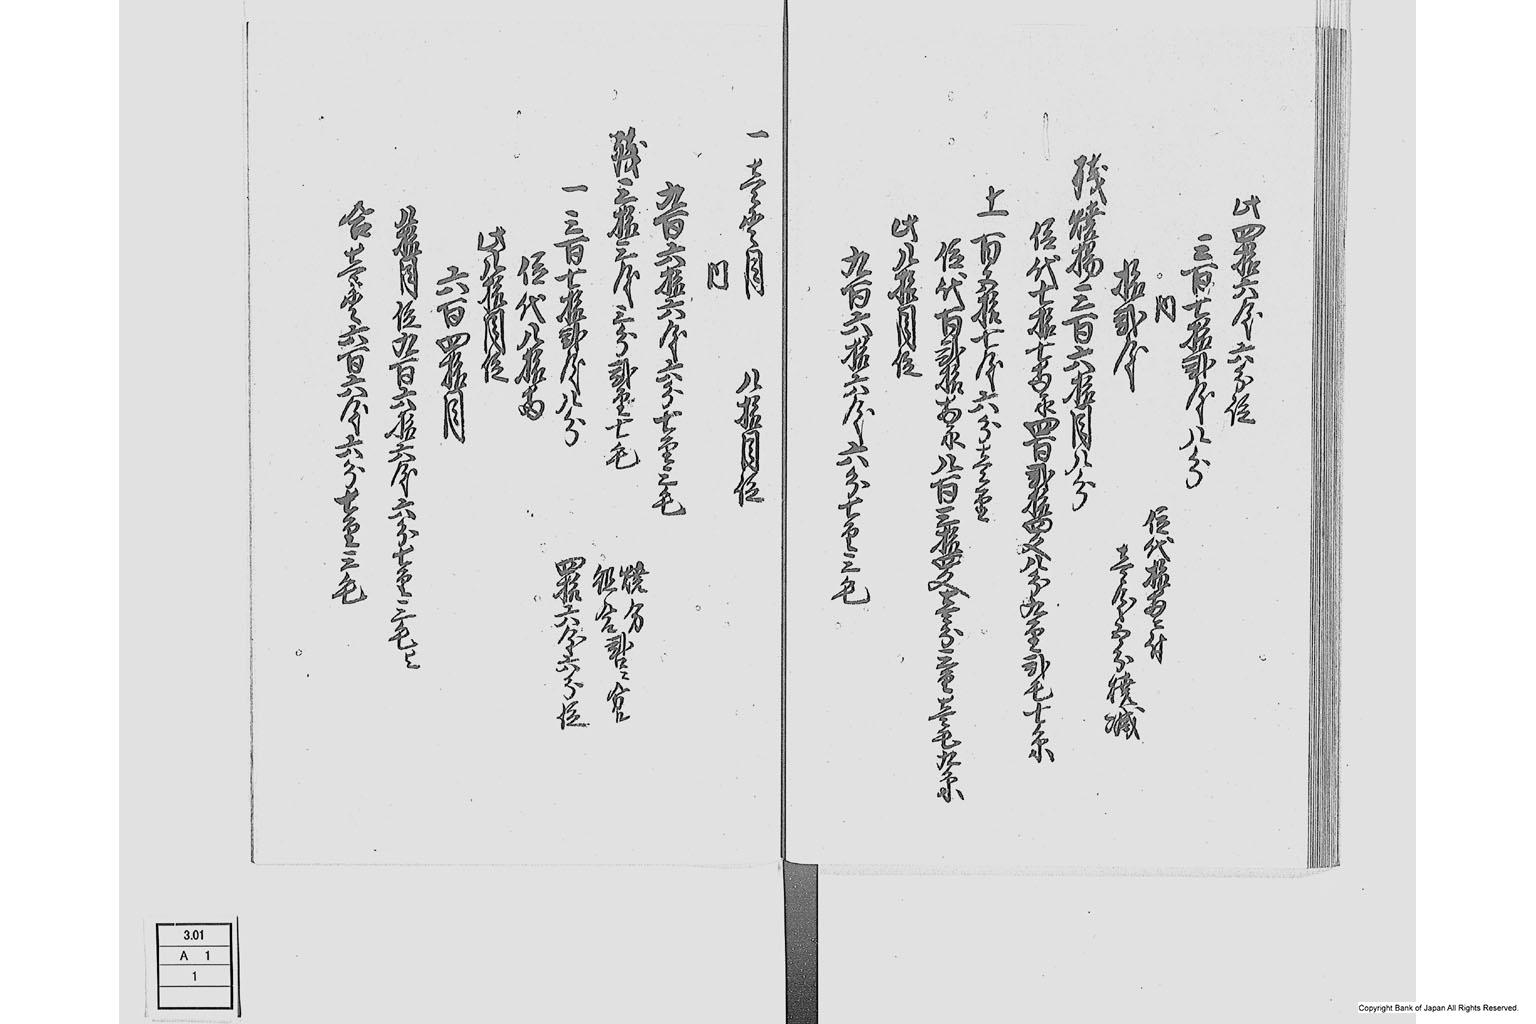 此四拾六匁六分位
三百七拾弐匁八分
内
拾弐匁
位代拾両ニ付
壱匁五分焼減
残焼揚三百六拾目八分
位代七拾七両永四百弐拾四文八分九厘弐毛七糸
上 百五拾七匁六分壱厘
位代百弐拾両永八百三拾四文壱分三厘壱毛九糸
此八拾目位
九百六拾六匁六分七厘三毛
一 壱貫目 八拾目位
内
九百六拾六匁六分七厘三毛
残三拾三匁三分弐厘七毛
焼分
組合
一 三百七拾弐匁八分
四拾六匁六分位
位代八拾両
此八拾目位
六百四拾目
八拾目位九百六拾六匁六分七厘三毛と
合壱貫六百六匁六分七厘三毛
3.01
A 1
1
Copyright Bank of Japan All Rights Reserved.